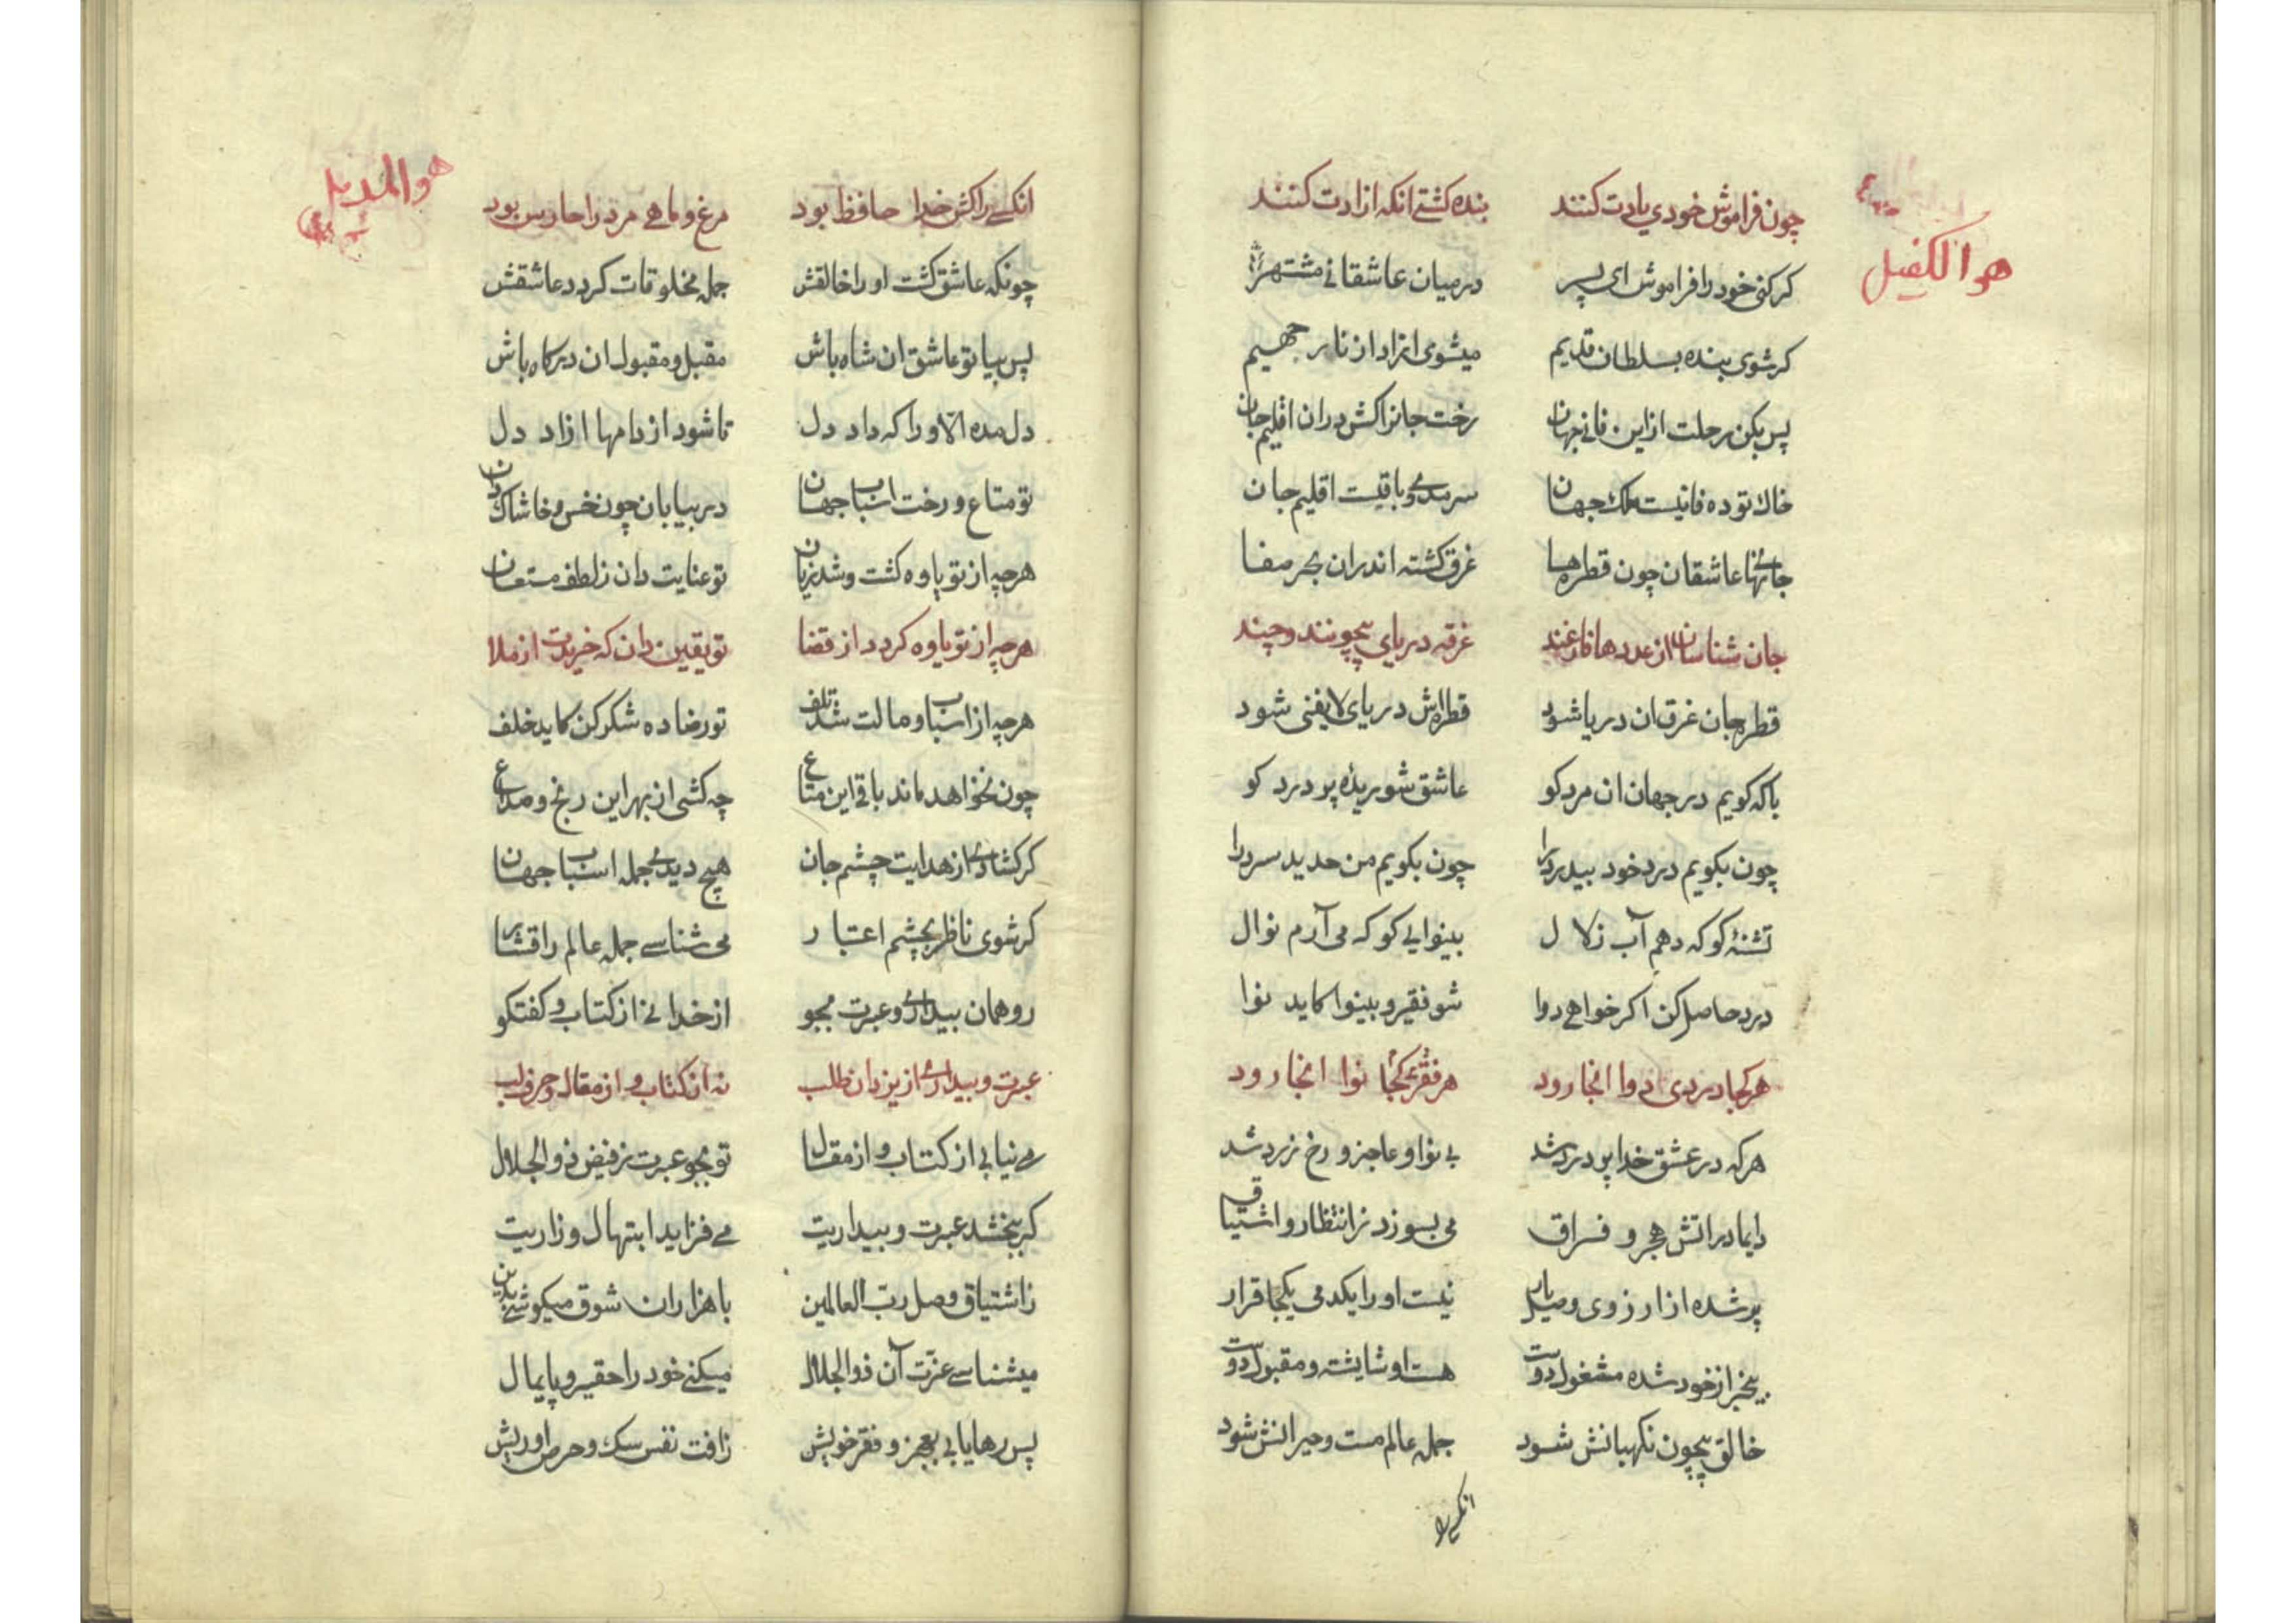 هو الكفیل
چون فراموش خودی یادت كنند بنده كشتے انكه ازادت كنند
كركنی خود را فراموش ای پسر درمیان عاشقانے مشتهر
كرشوی بنده بسلطان قدیم میشوی ازاد از نار جهیم
پس بكن رحلت از این فانے جهان رخت جانرا كش دران اقلیم جان
خاك توده فانیست ملك جهان سرمدے و باقیست اقلیم جان
جانهاے عاشقان چون قطره‌ها غرق كشته اندران بحر صفا
جان شناسان از عددها فارغند غرقه دریای بیچونند و چند
قطره جان غرق ان دریا شود قطره‌اش دریای لایفنی شود
باكه كویم درجهان ان مرد كو عاشق شوریده پر درد كو
چون بكویم درد خود بیدرد را چون بكویم من حدید سرد را
تشنهٔ كو كه دهم آب زلال بینوایے كو كه می‌آرم نوال
درد حاصل كن اكر خواهے دوا شو فقیر و بینوا كاید نوا
هركجا دردی دوا انجا رود هركجا فقرے نوا انجا رود
هركه در عشق خدا پر درد شد بی نوا و عاجز و رخ زرد شد
دایما در اتش هجر و فراق می بسوزد ز انتظار و اشتیاق
پر شده از ارزوی وصل یار نیست او را یكدمی یكجا قرار
بیخبر از خود شده مشغول دوست هست او شایسته و مقبول دوست
خالق بیچون نكهبانش شود جمله عالم مست و حیرانش شود
انكسے را
هو المذل
انكسے را كش خدا حافظ بود مرغ و ماهے مرد را حارس بود
چونكه عاشق كشت او را خالقش جمله مخلوقات كردد عاشقش
پس بیا تو عاشق ان شاه باش مقبل و مقبول ان دركاه باش
دل مده الا او را كه داد دل تا شود از دامها ازاد دل
تو متاع و رخت اسباب جهان در بیابان چون خس و خاشاك دان
هرچه از تو یاوه كشت و شد زیان تو عنایت دان ز لطف مستعان
هرچه از تو یاوه كردد از قضا تو یقین دان كه خریدت از بلا
هرچه از اسباب و مالت شد تلف تو رضا ده شكر كن كاید خلف
چون نخواهد ماند باقی این متاع چه كشی از بهر این رنج و صداع
كر كشادے از هدایت چشم جان هیچ دیدے جمله اسباب جهان
كرشوی ناظر بچشم اعتبار می شناسے جمله عالم را قشار
رو همان بیدارے و عبرت بجو از خدا نے از كتاب و كفتكو
عبرت و بیدارے از یزدان طلب نه از كتاب و از مقال و حرف لب
مے نیابی از كتاب و از مقال تو بجو عبرت ز فیض ذو الجلال
كر ببخشد عبرت و بیداریت مے فزاید ابتهال و زاریت
ز اشتیاق وصل رب العالمین با هزاران شوق میكوشے بدین
میشناسے عزت آن ذو الجلال میكنے خود را حقیر و پایمال
پس رهایابی بعجز و فقر خویش ز افت نفس سك و حرص